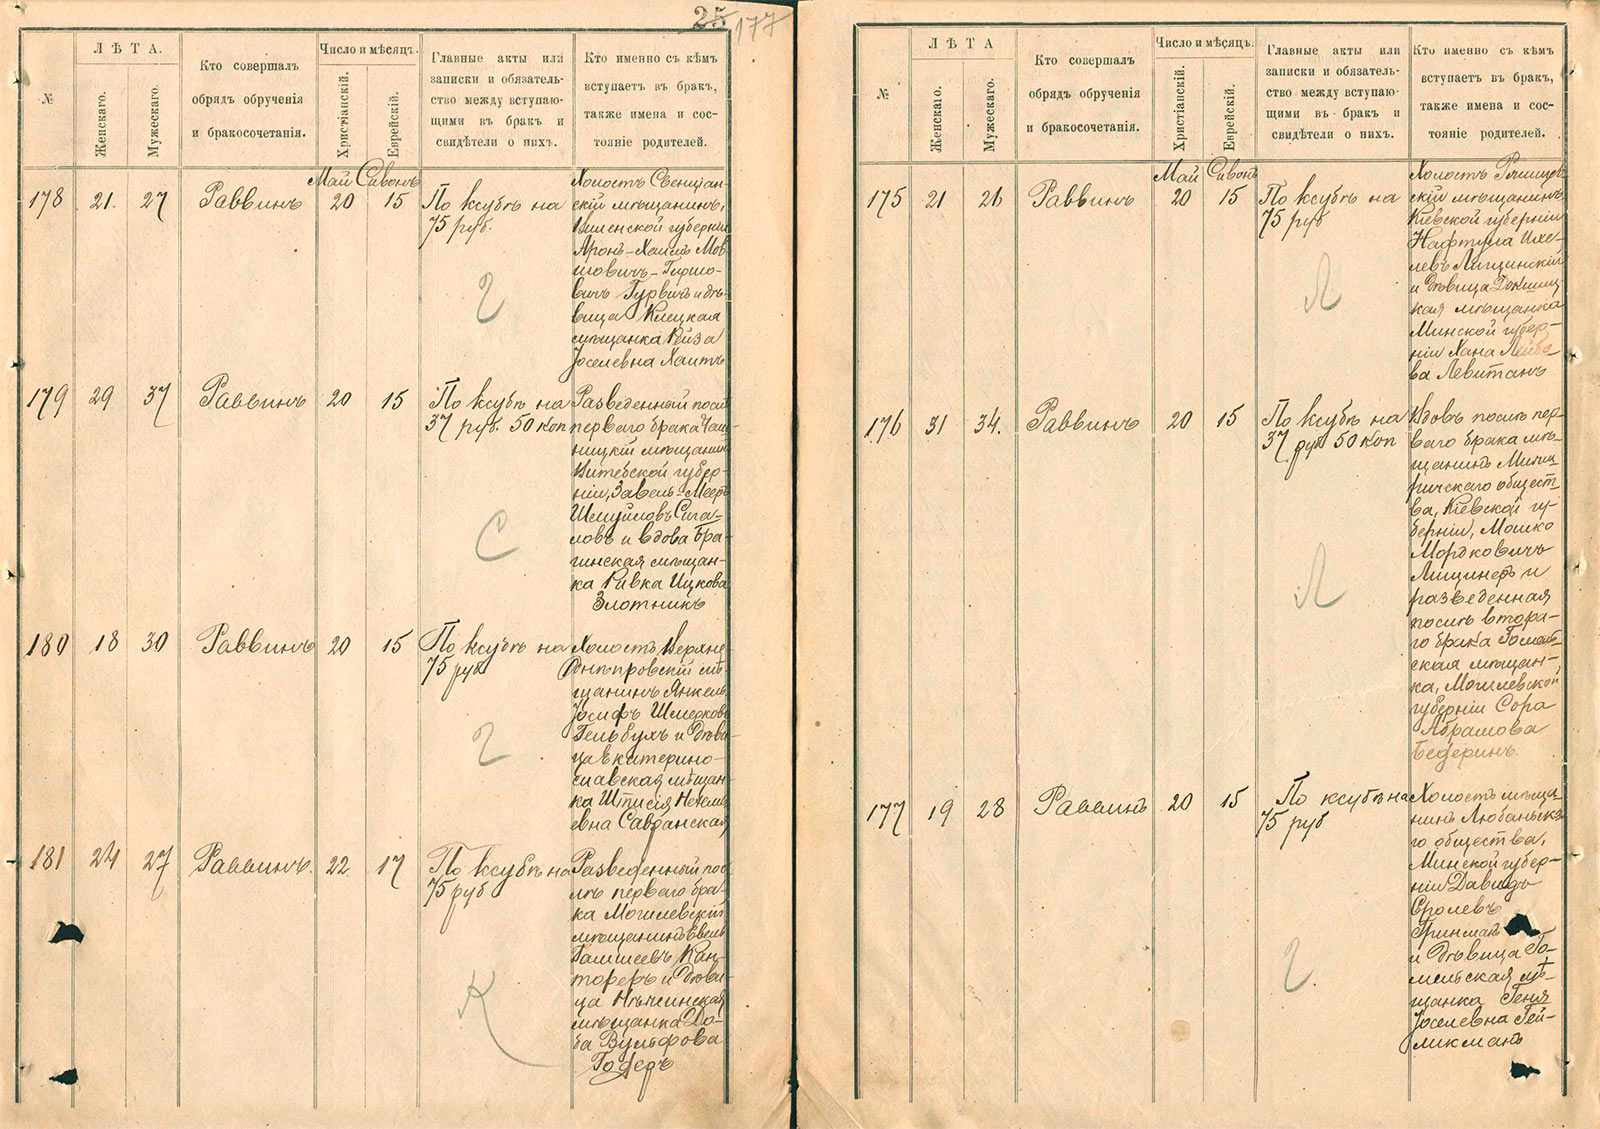 25 177
№
ЛѢТА.
Женскаго.
Мужескаго.
Кто совершалъ
обрядъ обрученія
и бракосочетанія.
Число и мѣсяцъ.
Христіанскій.
Еврейскій.
Главные акты или
записки и обязатель-
ство между вступаю-
щими въ бракъ и
свидѣтели о нихъ.
Кто именно съ кѣмъ
вступаетъ въ бракъ,
также имена и сос-
тояніе родителей.
Май Сивонъ
178 21. 27 Раввинъ 20 15
По ксубѣ на
75 руб.
Г
Холостъ Свенцян-
скій мѣщанинъ,
Виленской губерніи
Аронъ-Хаимъ Мов-
шовичъ-Гиршо-
вичъ Гурвичъ и дѣ-
вица Клецкая
мѣщанка Рейза
Іоселевна Хаитъ
179 29 37 Раввинъ 20 15
По ксубѣ на
37 руб. 50 коп
С
Разведенный послѣ
перваго брака Чаш-
ницкій мѣщанинъ
Витебской губер-
ніи, Завель-Мееръ
Шмуйловъ Сига-
ловъ и вдова Бра-
гинская мѣщан-
ка Ривка Ицкова
Злотникъ
180 18 30 Раввинъ 20 15
По ксубѣ на
75 руб
Г
Холостъ Верхне-
Днѣпровскій мѣ-
щанинъ Янкель
Іосифъ Шмерковъ
Гельбухъ и дѣви-
ца Екатерино-
славская мѣщан-
ка Штисія Нехем-
евна Савранская
181 24 27 Раввинъ. 22 17
По ксубѣ на
75 руб
К
Разведенный пос-
лѣ перваго бра-
ка Могилевскій
мѣщанинъ Евель
Гамшеевъ Кан-
тореръ и дѣви-
ца Нѣжинская
мѣщанка До-
ба Вульфова
Гоферъ
№
ЛѢТА
Женскаго.
Мужескаго.
Кто совершалъ
обрядъ обрученія
и бракосочетанія.
Число и мѣсяцъ.
Христіанскій.
Еврейскій.
Главные акты или
записки и обязатель-
ство между вступаю-
щими въ бракъ и
свидѣтели о нихъ.
Кто именно съ кѣмъ
вступаетъ въ бракъ,
также имена и сос-
тояніе родителей.
Май Сивонъ
175 21 26 Раввинъ 20 15
По ксубѣ на
75 руб
Л
Холостъ Ржищев-
скій мѣщанинъ
Кіевской губерніи
Нафтула Ихе-
левъ Лищинскій
и дѣвица Докшиц-
кая мѣщанка
Минской губер-
ніи Хана Лейбо-
ва Левитанъ
176 31 34. Раввинъ 20 15
По ксубѣ на
37 руб 50 коп
Л
Вдовъ послѣ пер-
ваго брака мѣ-
щанинъ
общест-
ва, Кіевской гу-
берніи, Мошко
Мордковичъ
Лищинеръ и
разведенная
послѣ втора-
го брака Гомель-
ская мѣщан-
ка, Могилевской
губерніи Сора
Абрамова
Беферинъ.
177 19 28 Раввинъ 20 15
По ксубѣ на
75 руб
Г
Холостъ мѣща-
нинъ Любаньска-
го общества,
Минской губер-
ніи Давидъ
Сролевъ
Гринманъ
и дѣвица Го-
мельская мѣ-
щанка Геня
Іоселевна Гей-
ликманъ